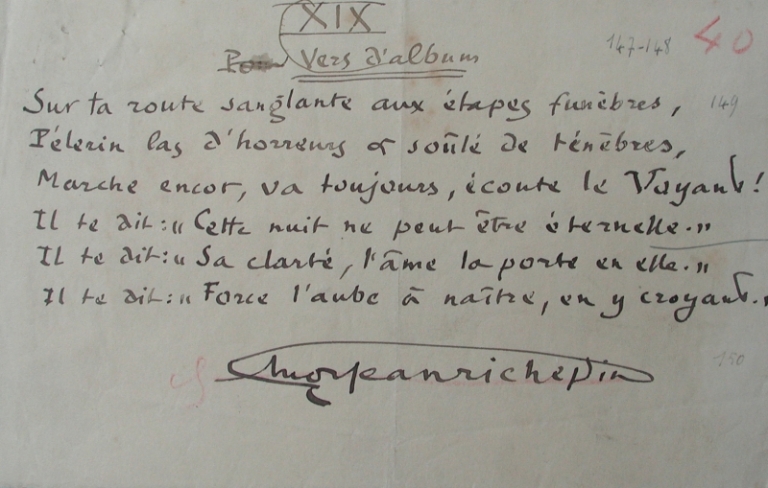 XIX
Pour Vers d'album
147-148 40
Sur ta route sanglante aux étapes funèbres, 149
Pélerin las d'horreurs & soûlé de ténèbres,
Marche encor, va toujours, écoute le Voyant!
Il te dit: « Cette nuit ne peut être éternelle. »
Il te dit: « Sa clarté, l'âme la porte en elle. »
Il te dit: « Force l'aube à naître, en y croyant. »
Jean Richepin
150